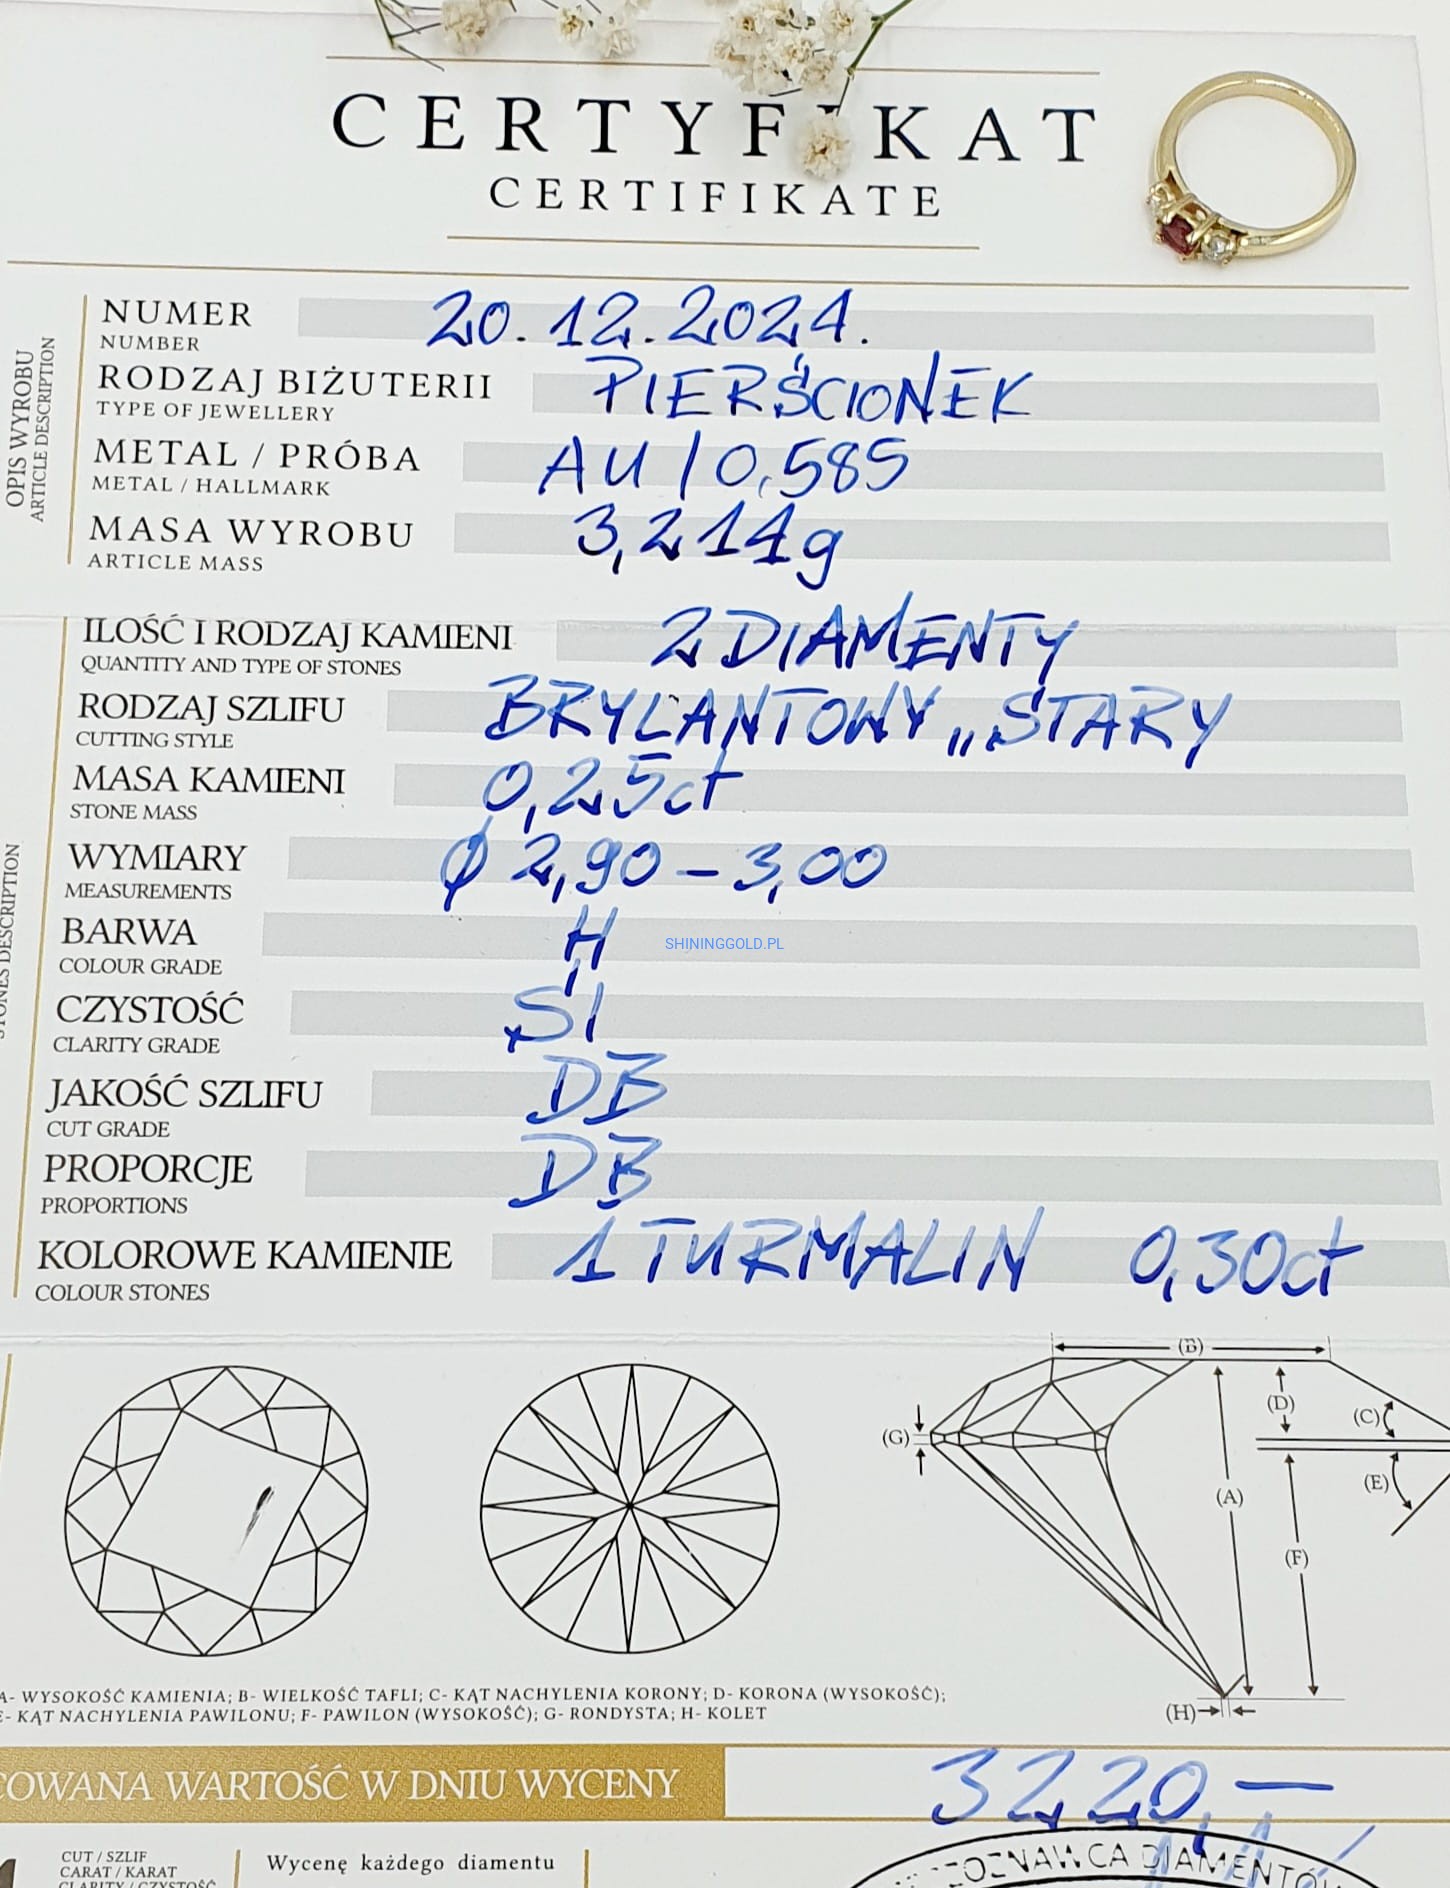 CERTYFIKAT
CERTIFIKATE
OPIS WYROBU
ARTICLE DESCRIPTION
NUMER 20.12.2024.
NUMBER
RODZAJ BIŻUTERII PIERŚCIONEK
TYPE OF JEWELLERY
METAL / PRÓBA AU / 0,585
METAL / HALLMARK
MASA WYROBU 3,214g
ARTICLE MASS
STONES DESCRIPTION
ILOŚĆ I RODZAJ KAMIENI 2 DIAMENTY
QUANTITY AND TYPE OF STONES
RODZAJ SZLIFU BRYLANTOWY „STARY
CUTTING STYLE
MASA KAMIENI 0,25ct
STONE MASS
WYMIARY ϕ 2,90 – 3,00
MEASUREMENTS
BARWA H
COLOUR GRADE
SHININGGOLD.PL
CZYSTOŚĆ SI
CLARITY GRADE
JAKOŚĆ SZLIFU DB
CUT GRADE
PROPORCJE DB
PROPORTIONS
KOLOROWE KAMIENIE 1 TURMALIN 0,30ct
COLOUR STONES
(B)
(D)
(C)
(G)
(E)
(A)
(F)
(H)
A- WYSOKOŚĆ KAMIENIA; B- WIELKOŚĆ TAFLI; C- KĄT NACHYLENIA KORONY; D- KORONA (WYSOKOŚĆ);
E- KĄT NACHYLENIA PAWILONU; F- PAWILON (WYSOKOŚĆ); G- RONDYSTA; H- KOLET
COWANA WARTOŚĆ W DNIU WYCENY 3220,—
CUT / SZLIF
CARAT / KARAT
CLARITY / CZYSTOŚĆ
Wycenę każdego diamentu
ZOZNAWCA DIAMENTÓW